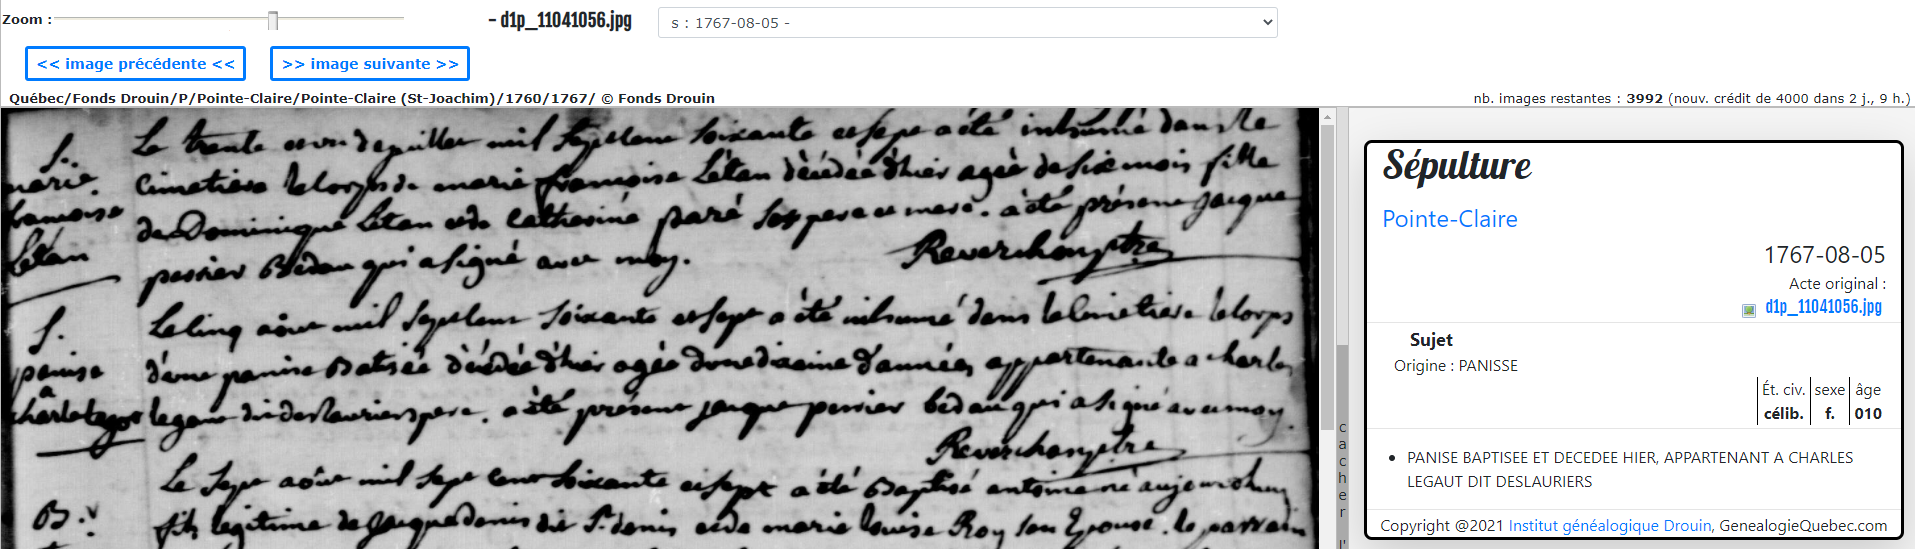 Zoom :
- d1p_11041056.jpg
s : 1767-08-05 -
<< image précédente <<
>> image suivante >>
Québec/Fonds Drouin/P/Pointe-Claire/Pointe-Claire (St-Joachim)/1760/1767/ © Fonds Drouin
nb. images restantes : 3992 (nouv. crédit de 4000 dans 2 j., 9 h.)
S..
marie
francoise
Létan
Le trente et un de juillet mil sept cent soixante et sept a été inhumé dans le
cimetiere le corps de marie francoise Létan décédée d'hier agée de six mois fille
de Dominique Létan et de catherine paré ses pere et mere. a été présent jacque
perrier Bedau qui a signé avec moy.
Reverchon ptre
S.
panise
a
charle legos
Le cinq aôut mil sept cent soixante et sept a été inhumé dans le cimetiere le corps
d'une panise Batisée décédée d'hier agée d'une dixaine d'années appartenante a charles
legaut dit deslauriers pere. a été présent jacque perrier bedau qui a signé avec moy.
Reverchon ptre
B.
Le sept aôut mil sept cent soixante et sept a été Baptisé antoine né aujourdhuy
fils legitime de jacque denis dit St. denis et de marie louise Roy son Epouse. le parrain
cacher l'
Sépulture
Pointe-Claire
1767-08-05
Acte original :
d1p_11041056.jpg
Sujet
Origine : PANISSE
Ét. civ. sexe âge
célib. f. 010
• PANISE BAPTISEE ET DECEDEE HIER, APPARTENANT A CHARLES
LEGAUT DIT DESLAURIERS
Copyright @2021 Institut généalogique Drouin, GenealogieQuebec.com